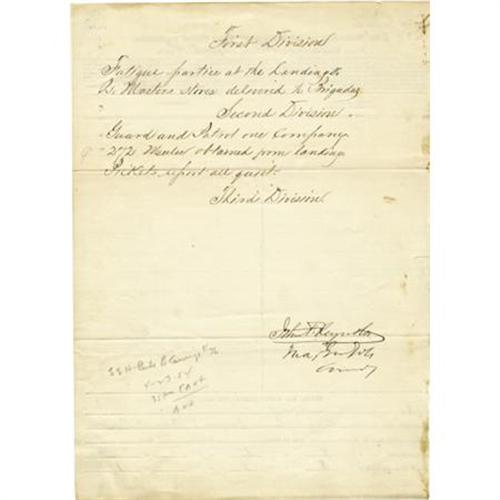 First Division
Fatigue parties at the Landing &
Qr Masters stores delivered to Brigades
Second Division.
Guard and Patrol one Company
272 Mules obtained from landing
Pickets report all quiet.
Third Division
John F Reynolds
Maj Gen Vols
Comdg